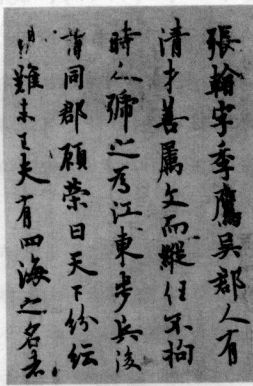 張翰字季鷹吳郡人有
清才善屬文而縱任不拘
時人號之為江東步兵後
謂同郡顧榮曰天下紛紜
難未已夫有四海之名者